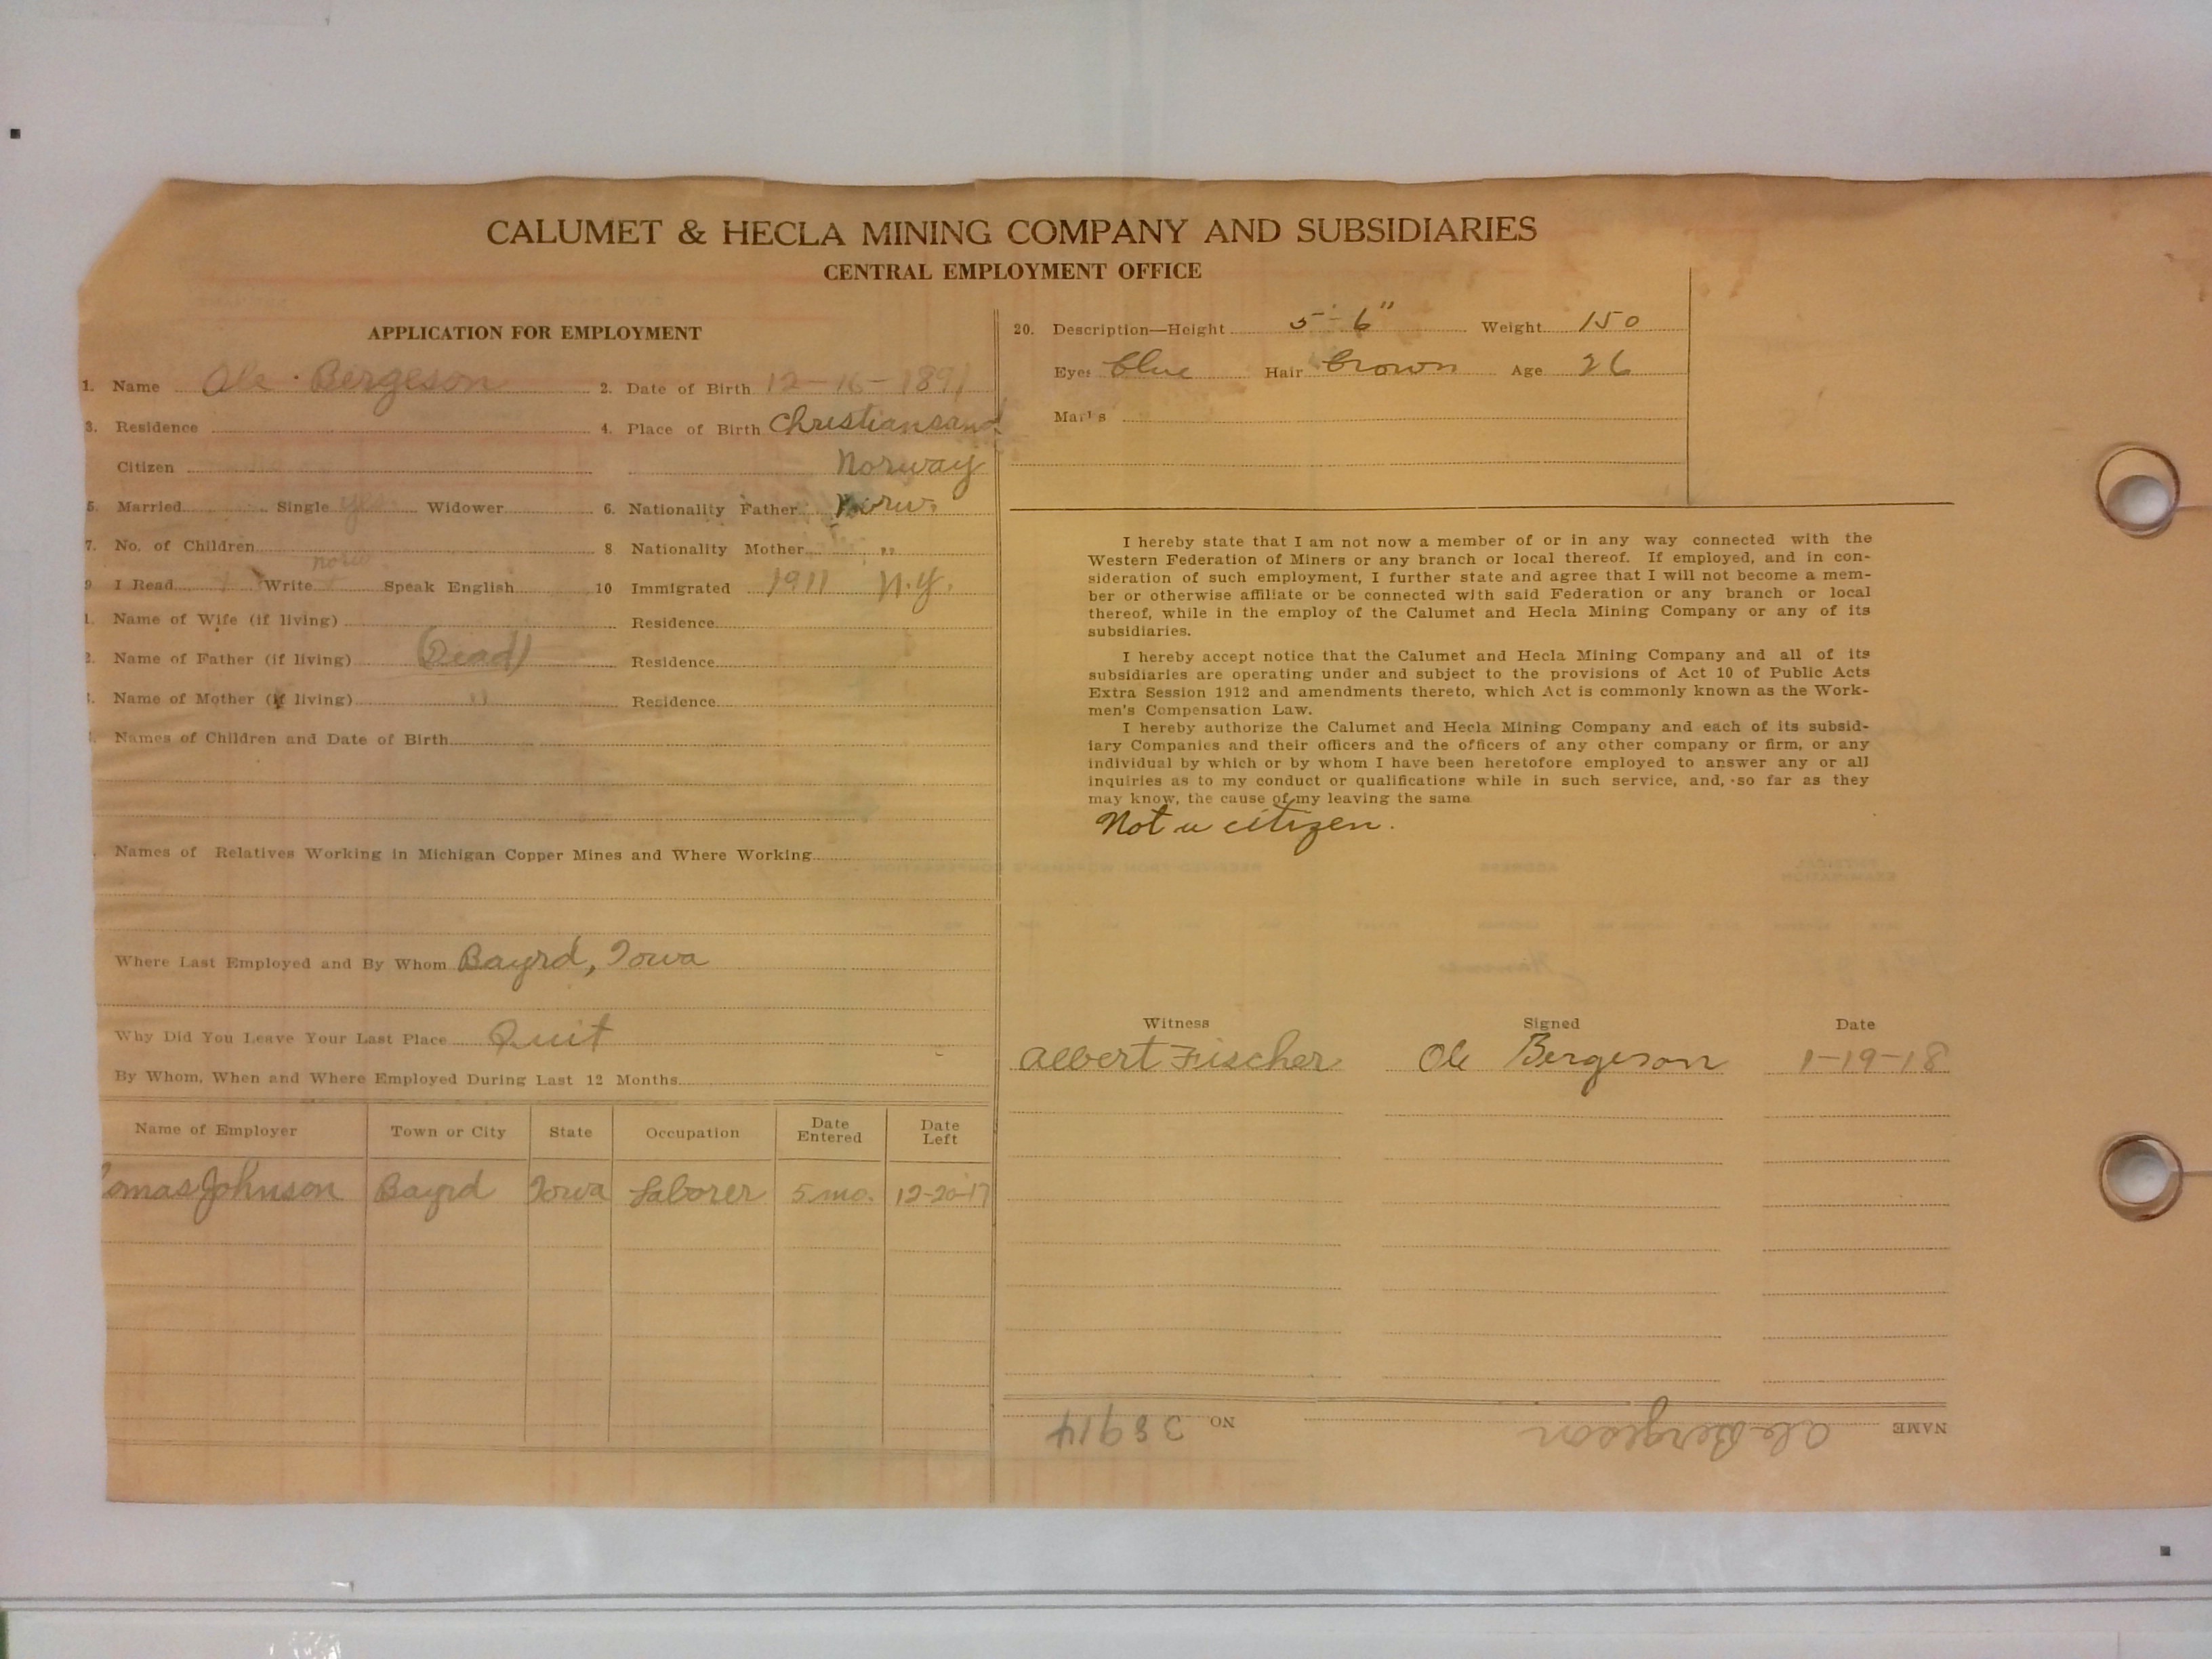 CALUMET & HECLA MINING COMPANY AND SUBSIDIARIES
CENTRAL EMPLOYMENT OFFICE
APPLICATION FOR EMPLOYMENT
1. Name Ole Bergeson 2. Date of Birth 12-16-1891
3. Residence 4. Place of Birth Christiansand
Citizen Norway
5. Married Single yes. Widower 6. Nationality Father Norw.
7. No. of Children 8 Nationality Mother "
norw.
9 I Read x Write x Speak English 10 Immigrated 1911 N.Y.
1. Name of Wife (if living) Residence
2. Name of Father (if living) (Dead) Residence
Name of Mother (if living) " Residence
Names of Children and Date of Birth
Names of Relatives Working in Michigan Copper Mines and Where Working
Where Last Employed and By Whom Bayrd, Iowa
Why Did You Leave Your Last Place Quit
By Whom, When and Where Employed During Last 12 Months
Name of Employer Town or City State Occupation Date Entered Date Left
omas Johnson Bayrd Iowa Laborer 5 mo. 12-20-17
20. Description—Height 5-6" Weight 150
Eyes blue Hair brown Age 26
Marks
I hereby state that I am not now a member of or in any way connected with the
Western Federation of Miners or any branch or local thereof. If employed, and in con-
sideration of such employment, I further state and agree that I will not become a mem-
ber or otherwise affiliate or be connected with said Federation or any branch or local
thereof, while in the employ of the Calumet and Hecla Mining Company or any of its
subsidiaries.
I hereby accept notice that the Calumet and Hecla Mining Company and all of its
subsidiaries are operating under and subject to the provisions of Act 10 of Public Acts
Extra Session 1912 and amendments thereto, which Act is commonly known as the Work-
men's Compensation Law.
I hereby authorize the Calumet and Hecla Mining Company and each of its subsid-
iary Companies and their officers and the officers of any other company or firm, or any
individual by which or by whom I have been heretofore employed to answer any or all
inquiries as to my conduct or qualifications while in such service, and, so far as they
may know, the cause of my leaving the same
Not a citizen.
Witness Signed Date
Albert Fischer Ole Bergeson 1-19-18
NAME Ole Bergeson NO 38914